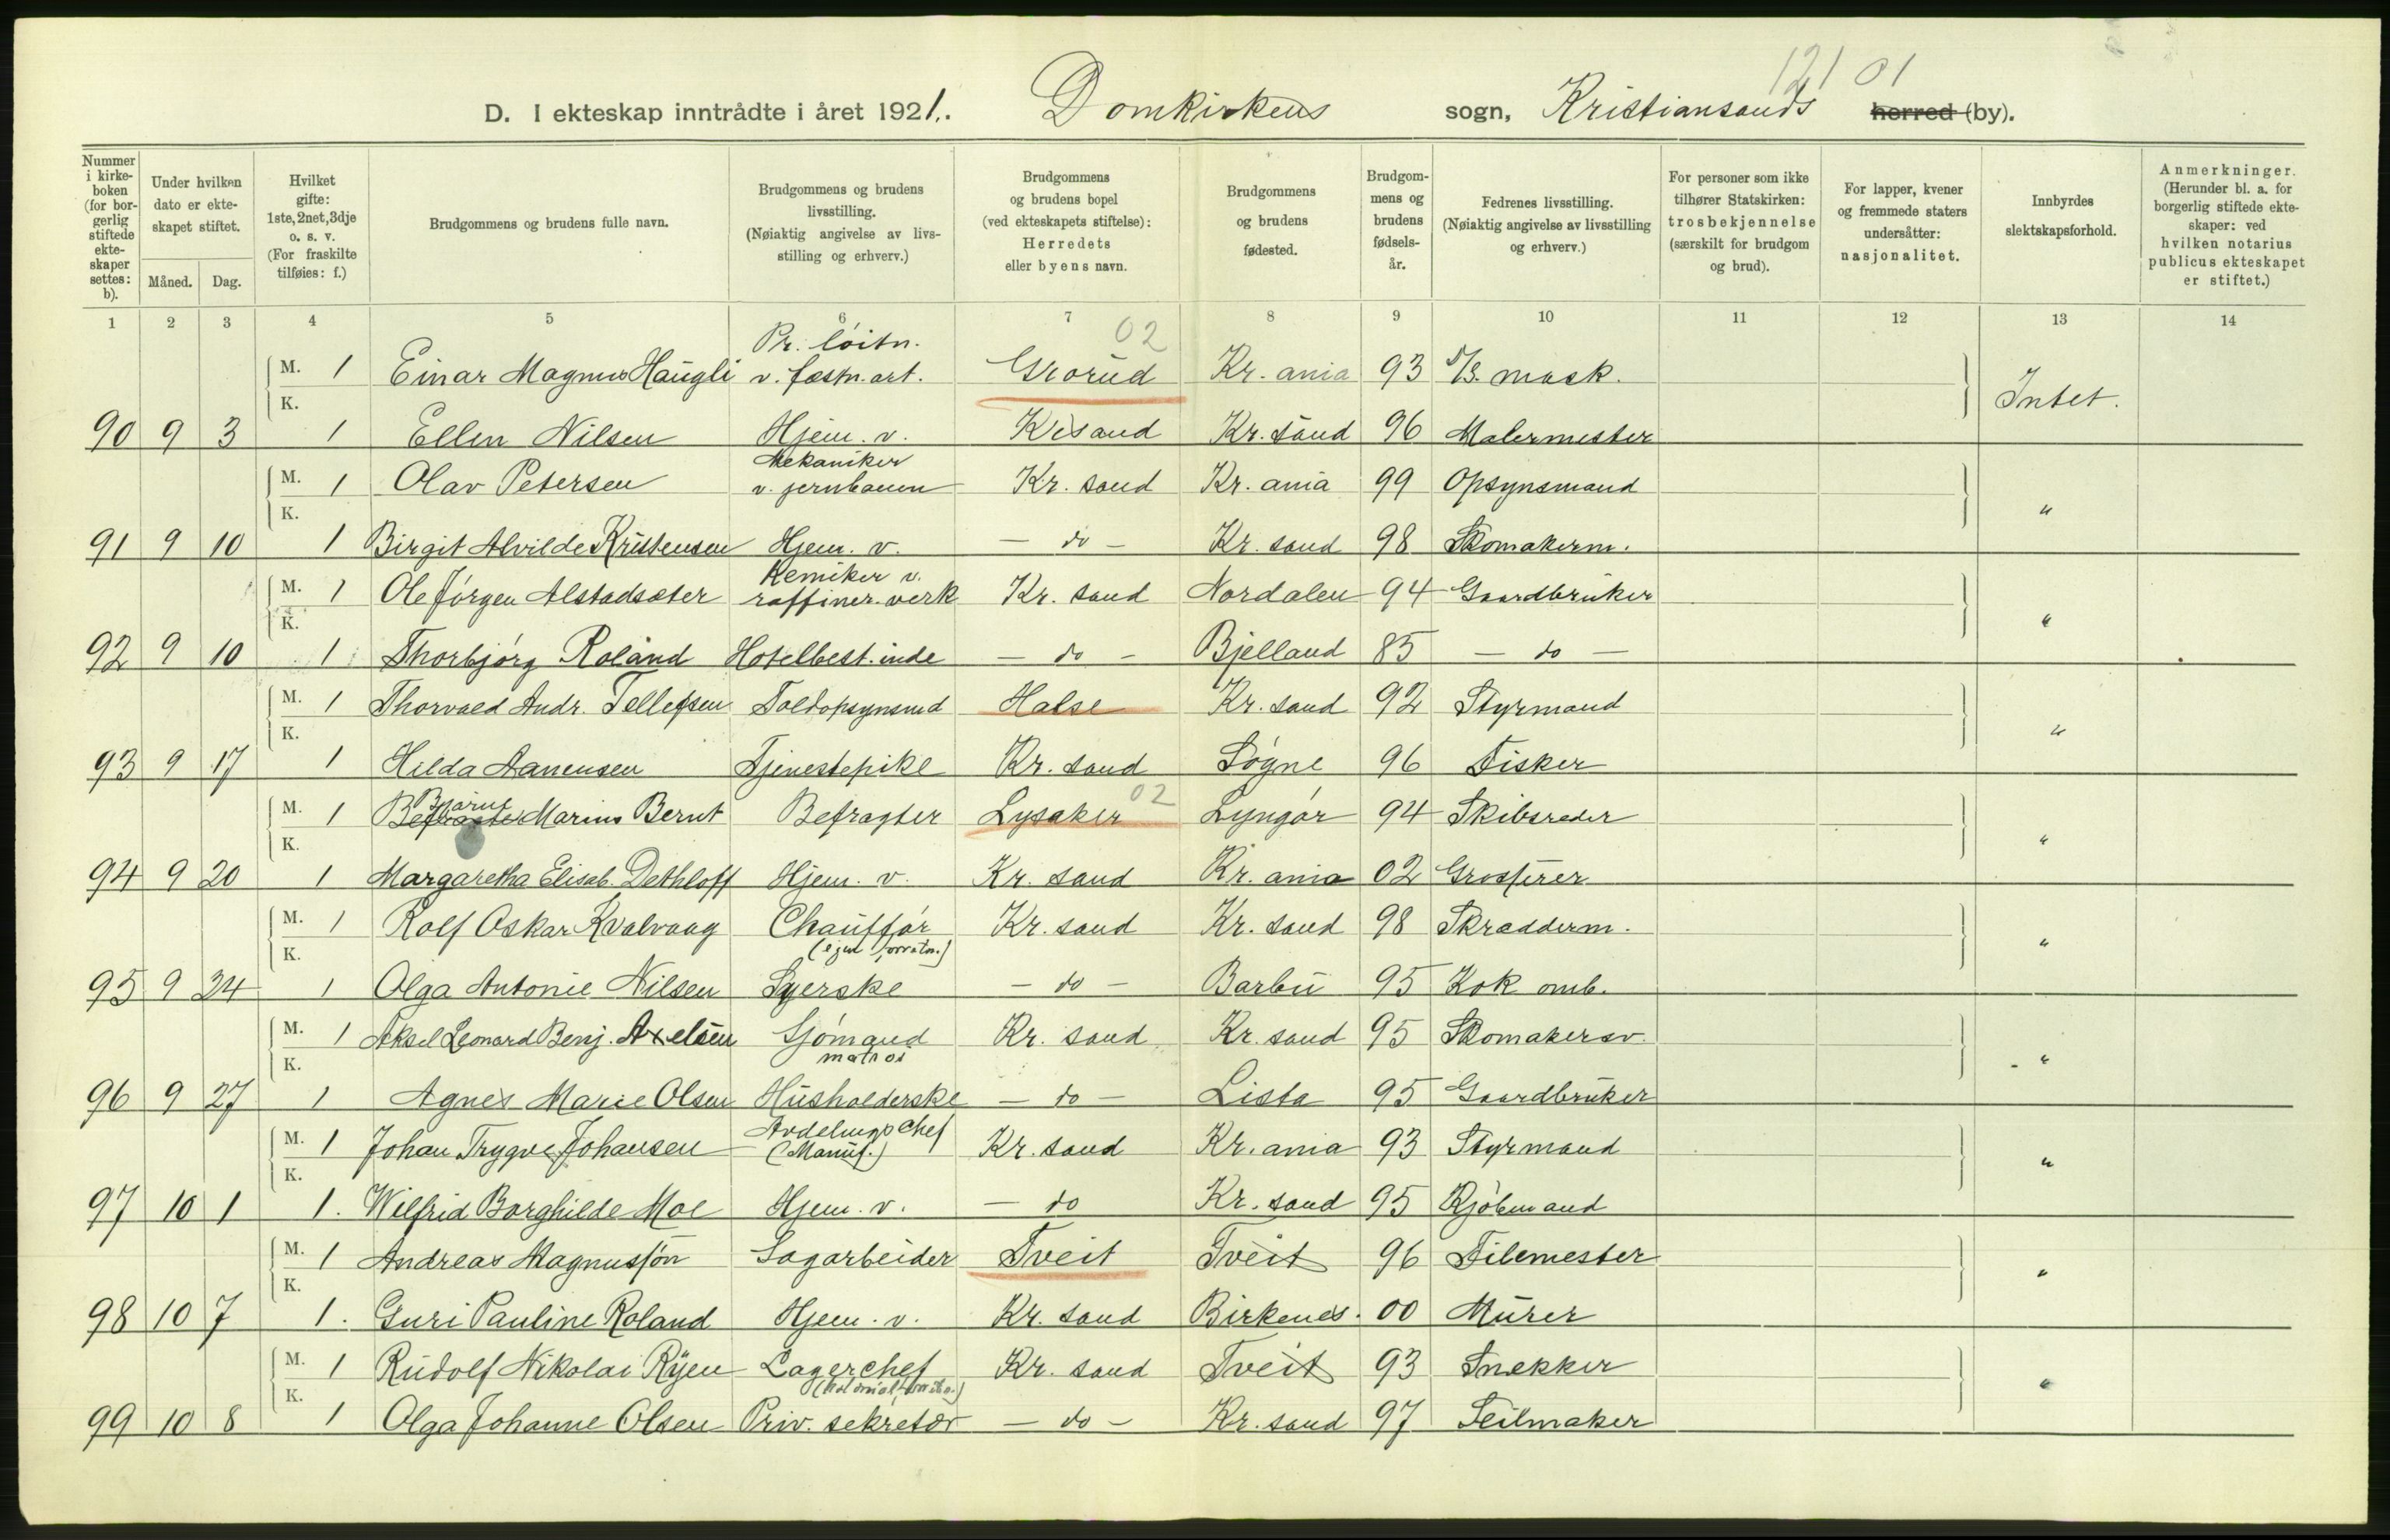 121 01
D. I ekteskap inntrådte i året 1921. Domkirkens sogn, Kristiansands herred (by).
Nummer i kirkeboken (for borgerlig stiftede ekteskaper settes: b).
Under hvilken dato er ekteskapet stiftet.
Måned. Dag.
Hvilket gifte: 1ste, 2net, 3dje o. s. v. (For fraskilte tilføies: f.)
Brudgommens og brudens fulle navn.
Brudgommens og brudens livsstilling. (Nøiaktig angivelse av livsstilling og erhverv.)
Brudgommens og brudens bopel (ved ekteskapets stiftelse): Herredets eller byens navn.
Brudgommens og brudens fødested.
Brudgommens og brudens fødselsår.
Fedrenes livsstilling. (Nøiaktig angivelse av livsstilling og erhverv.)
For personer som ikke tilhører Statskirken: trosbekjennelse (særskilt for brudgom og brud).
For lapper, kvener og fremmede staters undersåtter: nasjonalitet.
Innbyrdes slektskapsforhold.
Anmerkninger. (Herunder bl. a. for borgerlig stiftede ekteskaper: ved hvilken notarius publicus ekteskapet er stiftet.)
1 2 3 4 5 6 7 8 9 10 11 12 13 14
M. 1 Einar Magnus Haugli Pr. løitn. v. fæstn. art. Grorud 02 Kr. ania 93 mask.
K. Intet.
90 9 3 1 Ellen Nilsen Hjem. v. Krsand Kr. sand 96 Malermester
M. 1 Olav Petersen Mekaniker v. jernbanen Kr. sand Kr. ania 99 Opsynsmand
K. "
91 9 10 1 Birgit Alvilde Kristensen Hjem. v. — do — Kr. sand 98 Skomakerm.
M. 1 Ole Jørgen Alstadsæter Kemiker v. raffiner. verk Kr. sand Nordalen 94 Gaardbruker
K. "
92 9 10 1 Thorbjørg Roland Hotelbest. inde — do — Bjelland 85 — do —
M. 1 Thorvald Andr. Tellefsen Toldopsynsmd Halse Kr. sand 92 Styrmand
K. "
93 9 17 1 Hilda Aanensen Tjenestepike Kr. sand Søgne 96 Fisker
M. 1 Bjarne Marius Bernt Befragter Lysaker 02 Lyngør 94 Skibsreder
K. "
94 9 20 1 Margaretha Elisab. Dethloff Hjem. v. Kr. sand Kr. ania 02 Grosserer
M. 1 Rolf Oskar Kvalvaag Chauffør Kr. sand Kr. sand 98 Skrædderm.
K. "
95 9 24 1 Olga Antonie Nilsen Syerske — do — Barbu 95 Kok omb.
M. 1 Aksel Leonard Benj. Axelsen Sjømand matros Kr. sand Kr. sand 95 Skomakersv.
K. "
96 9 27 1 Agnes Marie Olsen Husholderske — do — Lista 95 Gaardbruker
M. 1 Johan Trygve Johansen Avdelingschef (Manuf.) Kr. sand Kr. ania 93 Styrmand
K. "
97 10 1 1. Wilfrid Borghilde Moe Hjem. v. — do Kr. sand 95 Kjøbmand
M. 1 Andreas Magnussøn Sagarbeider Tveit Tveit 96 Filemester
K. "
98 10 7 1. Guri Pauline Roland Hjem. v. Kr. sand Birkenes. 00 Murer
M. 1 Rudolf Nikolai Ryen Lagerchef Kr. sand Tveit 93 Snekker
K. "
99 10 8 1 Olga Johanne Olsen Priv. sekretær — do — Kr. sand 97 Seilmaker